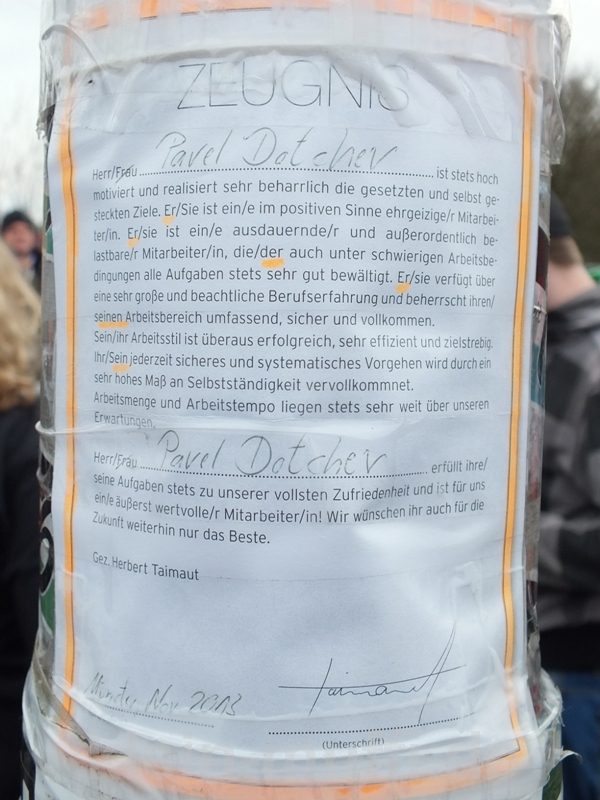 ZEUGNIS
Herr/Frau Pavel Dotchev ist stets hoch
motiviert und realisiert sehr beharrlich die gesetzten und selbst ge-
steckten Ziele. Er/Sie ist ein/e im positiven Sinne ehrgeizige/r Mitarbei-
ter/in. Er/sie ist ein/e ausdauernde/r und außerordentlich be-
lastbare/r Mitarbeiter/in, die/der auch unter schwierigen Arbeitsbe-
dingungen alle Aufgaben stets sehr gut bewältigt. Er/sie verfügt über
eine sehr große und beachtliche Berufserfahrung und beherrscht ihren/
seinen Arbeitsbereich umfassend, sicher und vollkommen.
Sein/ihr Arbeitsstil ist überaus erfolgreich, sehr effizient und zielstrebig.
Ihr/Sein jederzeit sicheres und systematisches Vorgehen wird durch ein
sehr hohes Maß an Selbstständigkeit vervollkommnet.
Arbeitsmenge und Arbeitstempo liegen stets sehr weit über unseren
Erwartungen.
Herr/Frau Pavel Dotchev erfüllt ihre/
seine Aufgaben stets zu unserer vollsten Zufriedenheit und ist für uns
ein/e äußerst wertvolle/r Mitarbeiter/in! Wir wünschen ihr auch für die
Zukunft weiterhin nur das Beste.
Gez. Herbert Taimaut
Münster Nov. 2013 Taimaut
(Unterschrift)